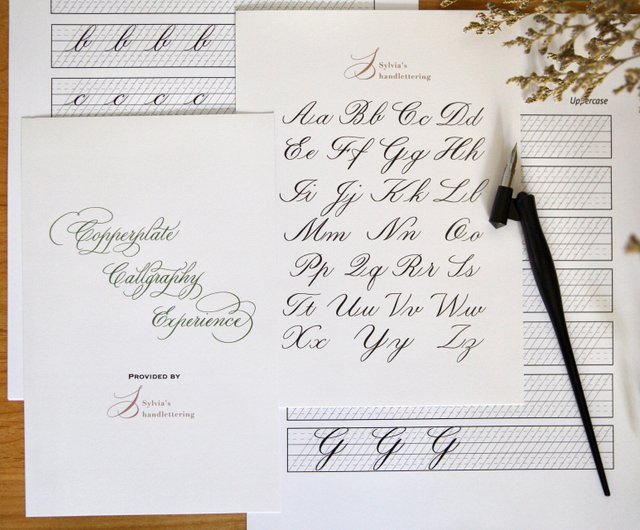 b b b b
c c c c
Copperplate
Calligraphy
Experience
PROVIDED BY
Sylvia's
handlettering
Sylvia's
handlettering
Aa Bb Cc Dd
Ee Ff Gg Hh
Ii Jj Kk Ll
Mm Nn Oo
Pp Qq Rr Ss
Tt Uu Vv Ww
Xx Yy Zz
Uppercase
G G G